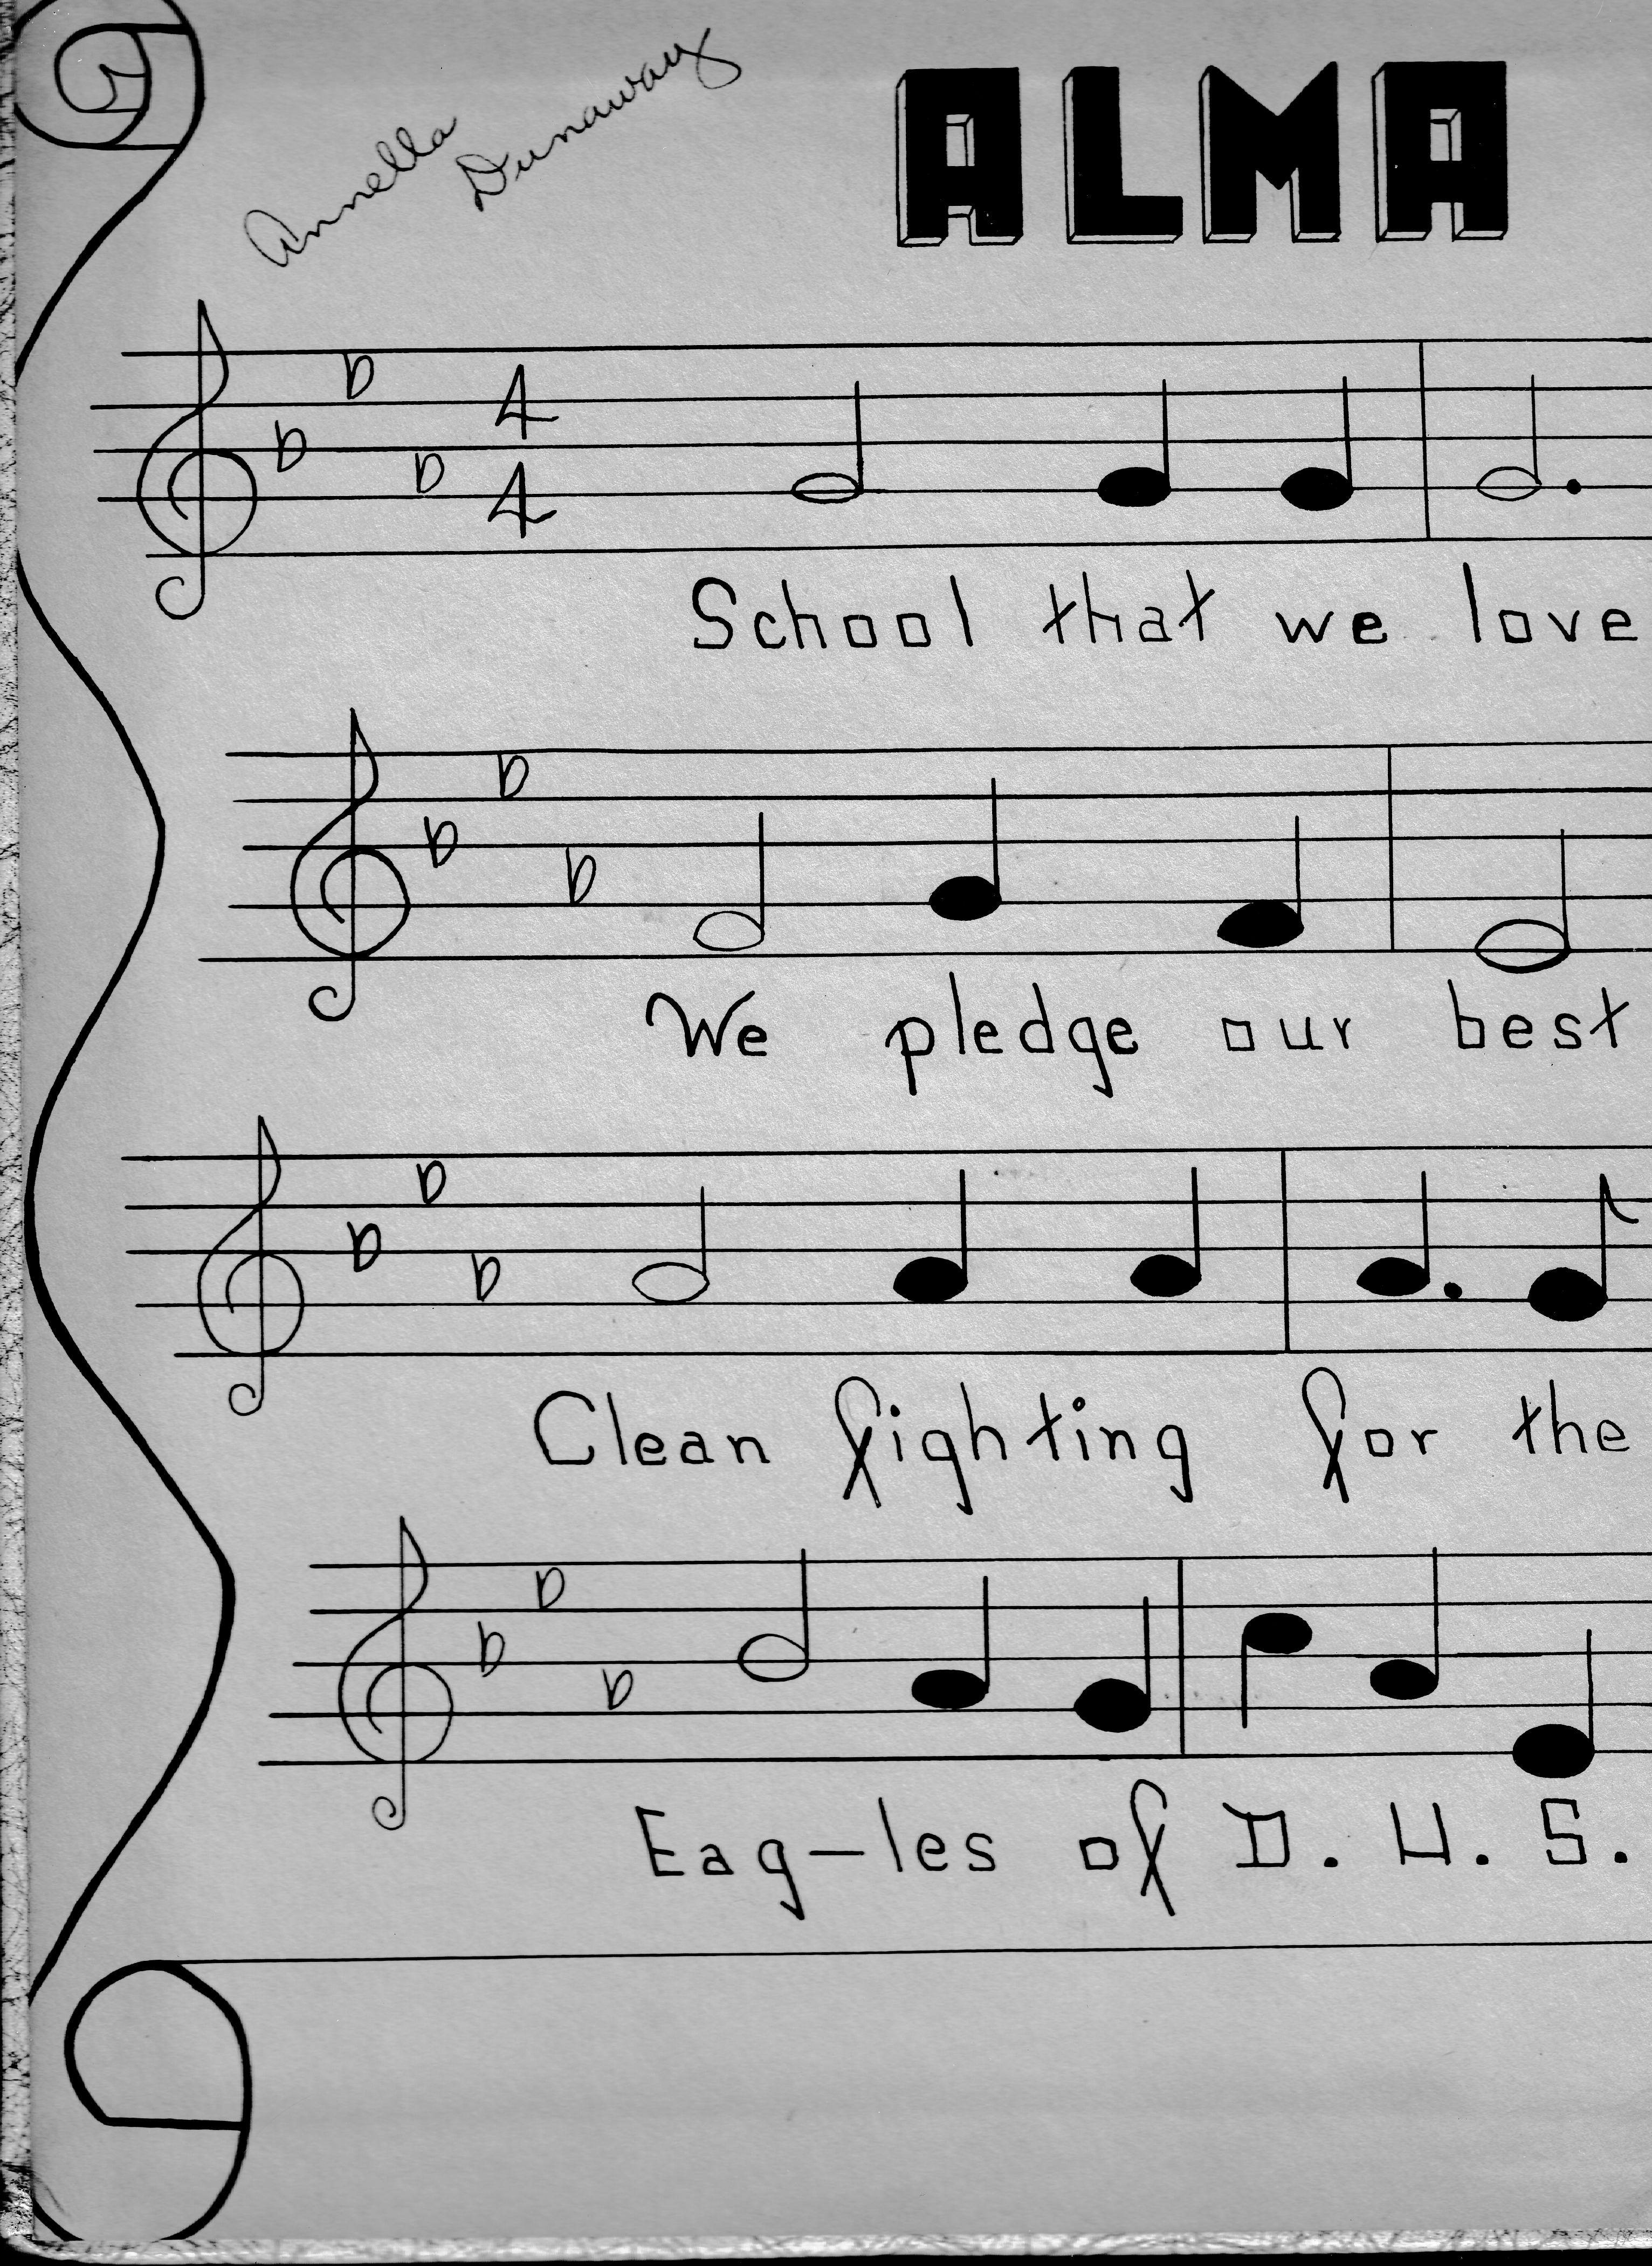 Annella
Dunaway
ALMA
4
4
School that we love
We pledge our best
Clean fighting for the
Eag-les of D. H. S.